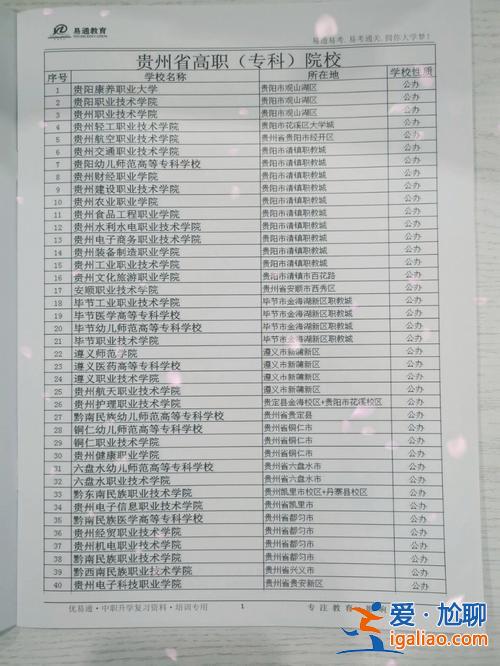 易通教育
易通易考,易考通关,圆你大学梦!
贵州省高职（专科）院校
序号 学校名称 所在地 学校性质
1 贵阳康养职业大学 贵阳市观山湖区 公办
2 贵阳职业技术学院 贵阳市观山湖区 公办
3 贵州职业技术学院 贵阳市观山湖区 公办
4 贵州轻工职业技术学院 贵阳市花溪区大学城 公办
5 贵州航空职业技术学院 贵州省贵阳市经开区 公办
6 贵州交通职业技术学院 贵阳市清镇职教城 公办
7 贵阳幼儿师范高等专科学校 贵阳市清镇职教城 公办
8 贵州财经职业学院 贵阳市清镇职教城 公办
9 贵州建设职业技术学院 贵阳市清镇职教城 公办
10 贵州农业职业学院 贵阳市清镇职教城 公办
11 贵州食品工程职业学院 贵阳市清镇职教城 公办
12 贵州水利水电职业技术学院 贵阳市清镇职教城 公办
13 贵州电子商务职业技术学院 贵阳市清镇职教城 公办
14 贵州装备制造职业学院 贵阳市清镇职教城 公办
15 贵州工业职业技术学院 贵阳市清镇职教城 公办
16 贵州文化旅游职业学院 贵阳市清镇市百花路 公办
17 安顺职业技术学院 贵州省安顺市西秀区 公办
18 毕节工业职业技术学院 毕节市金海湖新区职教城 公办
19 毕节医学高等专科学校 毕节市金海湖新区职教城 公办
20 毕节幼儿师范高等专科学校 毕节市金海湖新区职教城 公办
21 毕节职业技术学院 毕节市金海湖新区职教城 公办
22 遵义师范学院 遵义市新蒲新区 公办
23 遵义医药高等专科学校 遵义市新蒲新区 公办
24 遵义职业技术学院 遵义市新蒲新区 公办
25 贵州航天职业技术学院 遵义市新蒲新区 公办
26 贵州护理职业技术学院 贵定县金海校区+贵阳市花溪校区 公办
27 黔南民族幼儿师范高等专科学校 贵州省贵定县 公办
28 铜仁幼儿师范高等专科学校 贵州省铜仁市 公办
29 铜仁职业技术学院 贵州省铜仁市 公办
30 贵州健康职业学院 贵州省铜仁市 公办
31 六盘水幼儿师范高等专科学校 贵州省六盘水市 公办
32 六盘水职业技术学院 贵州省六盘水市 公办
33 黔东南民族职业技术学院 贵州凯里市校区+丹寨县校区 公办
34 贵州电子信息职业技术学院 贵州省凯里市 公办
35 黔南民族医学高等专科学校 贵州省都匀市 公办
36 贵州经贸职业技术学院 贵州省都匀市 公办
37 贵州机电职业技术学院 贵州省都匀市 公办
38 黔南民族职业技术学院 贵州省都匀市 公办
39 黔西南民族职业技术学院 贵州省兴义市 公办
40 贵州电子科技职业学院 贵州省贵安新区 公办
优易通·中职升学复习资料·培训专用
1
专注教育
爱·尬聊
igaliao.com